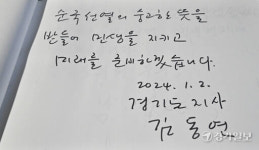 순국선열의 숭고한 뜻을
받들어 민생을 지키고
미래를 준비하겠습니다.
2024. 1. 2.
경기도지사
김동연